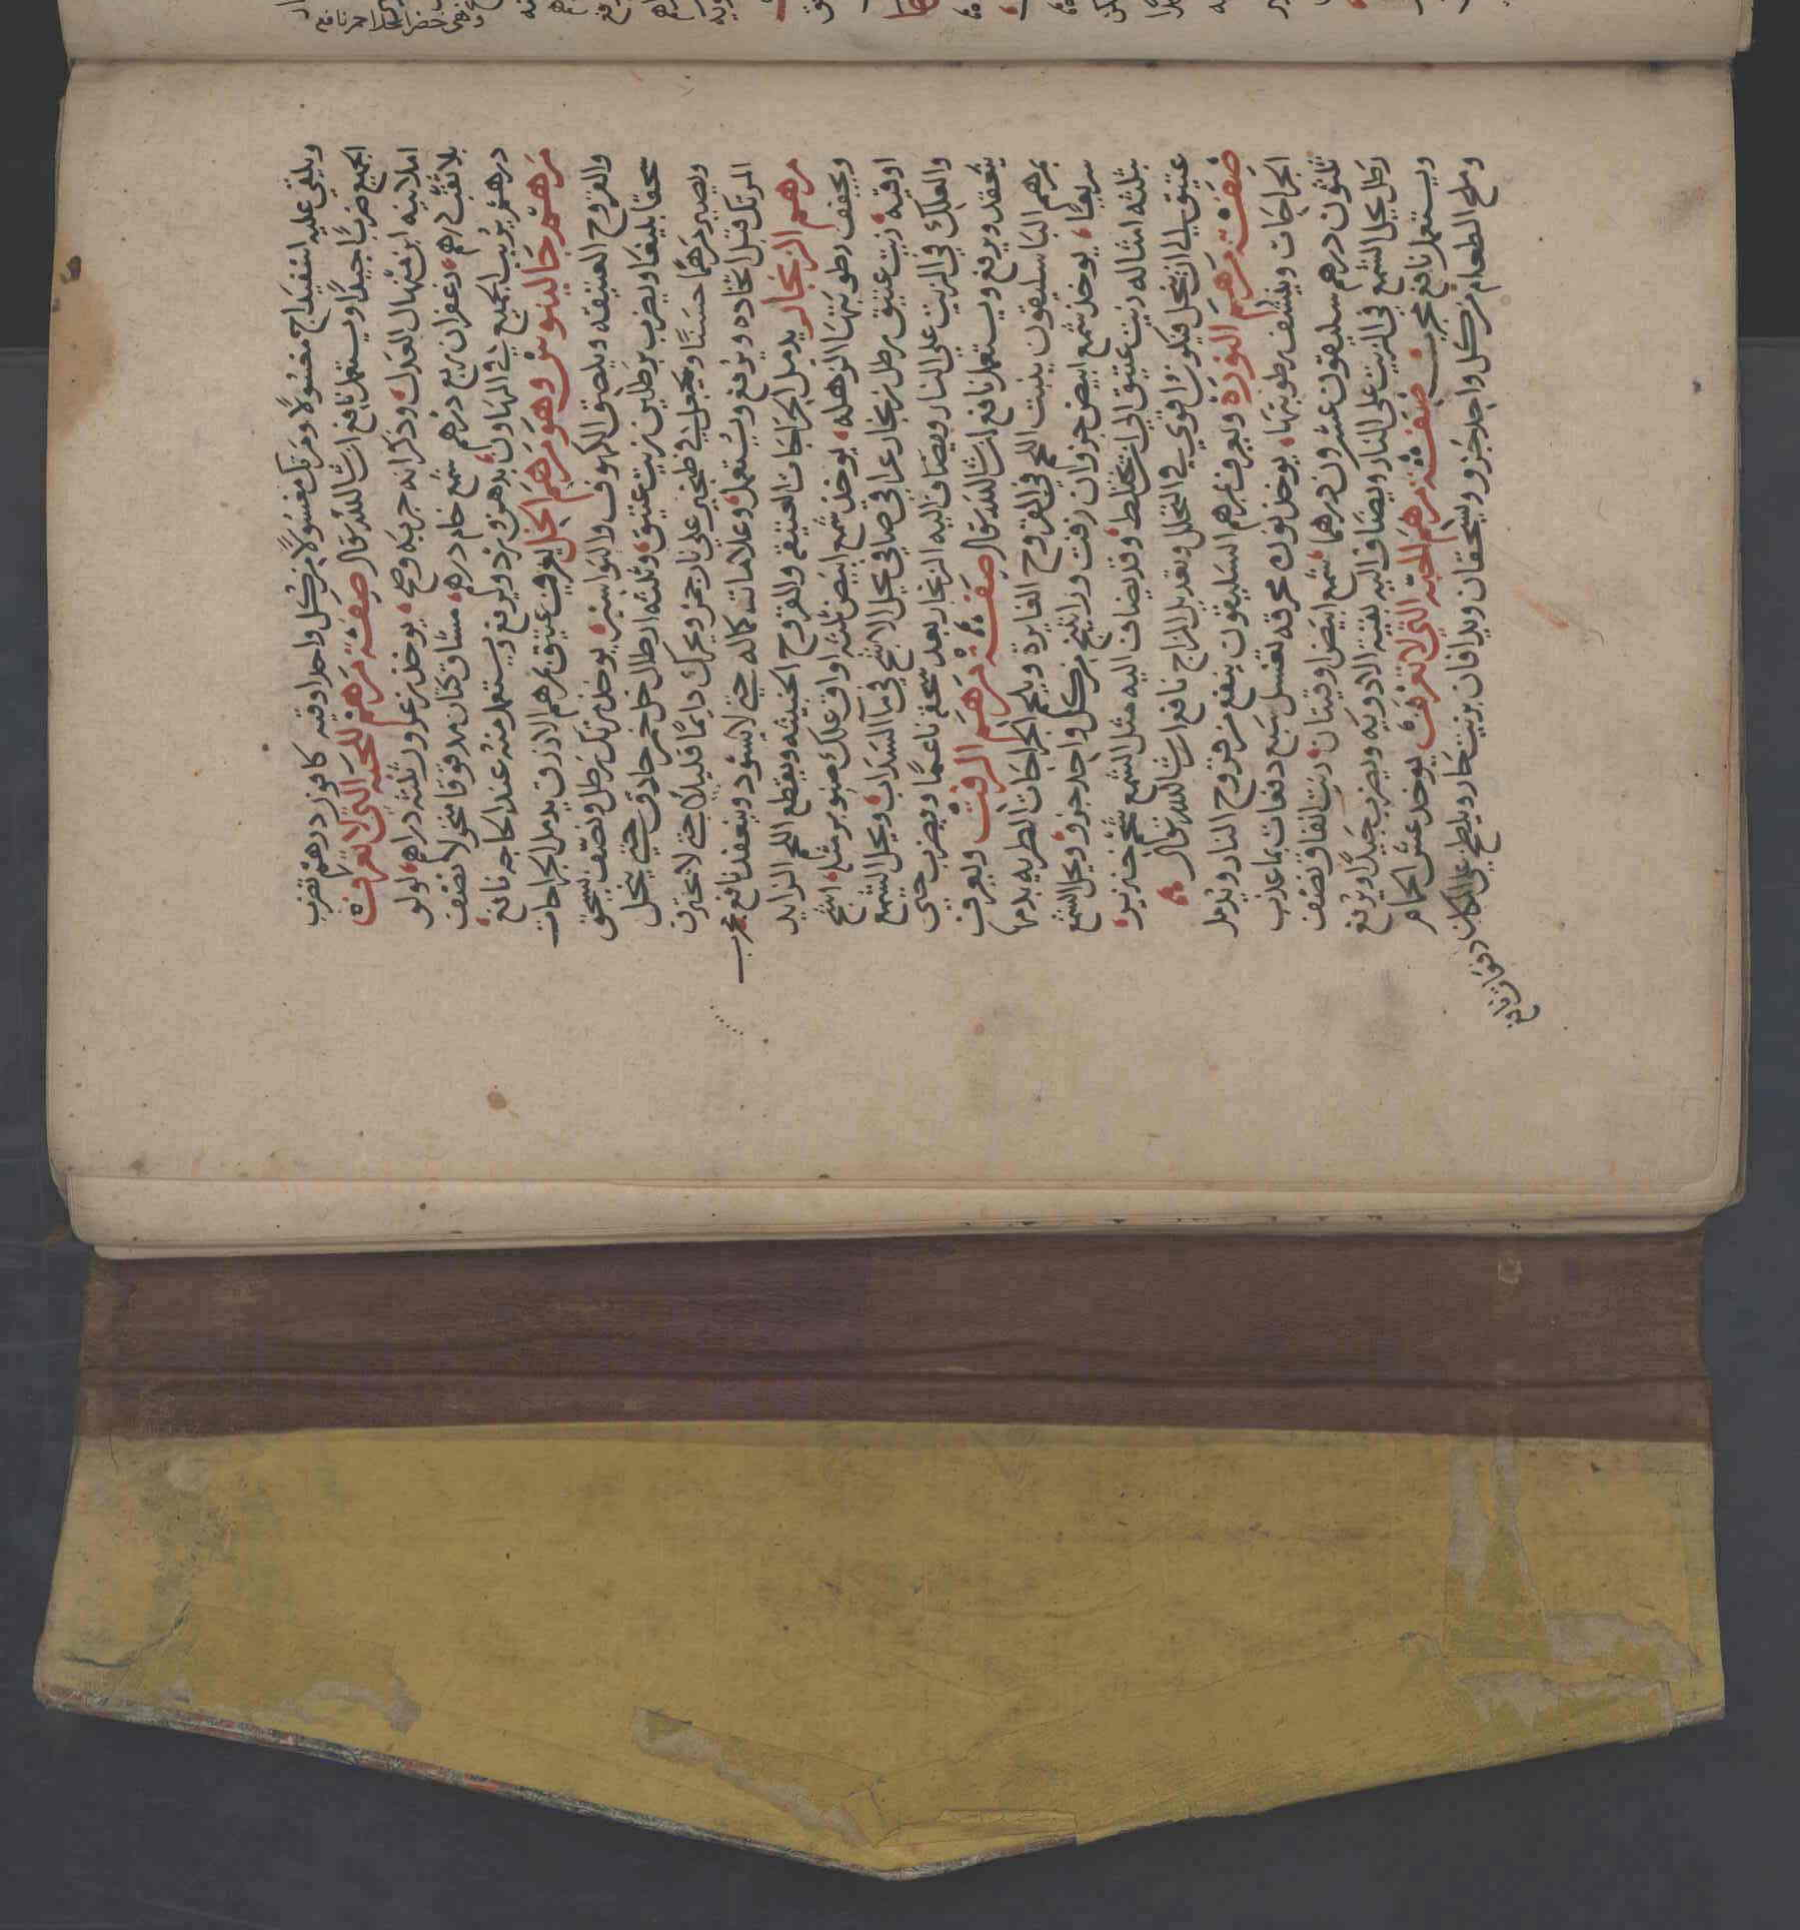 ويلقي عليه اسفيداج مغسولا ومرتك مغسولا من كل واحد اوقيه كافور درهم تضرب
الجميع ضربا جيدا ويستعمل نافع ان شا الله تعالى صفة مرهم للحبه التي لا تعرف
املانيه ابن منهال العدل وذكر انه جربه وصح يوخذ زعرور ثلثه دراهم لولو
بلا ثقب درهم زعفران ربع درهم شمع خام درهم مشاق كتان مدقوقا منخولا نصف
درهم يربب الجميع في الهاون بدهن ورد ويرفع ويستعمل منه عند الحاجه نافع
مرهم جالينوس وهو مرهم الخل يعرف عتيق بمرهم الازرق يدمل الجراحات
والقروح العتيقه ويلصق الكهوف والنواسير يوخذ مرتك رطل ونصف يسحق
سحقا بليغا ويضرب برطلين زيت عتيق وثلثه ارطال خل خمر حاذق حتى ينحل
ويصير مرهما حسنا ويجعل في طنجير على نار جمر ويحرك دايما قليلا حتى لا يحترق
المرتك قبل اتخاده ويرفع ويستعمل وعلامات كماله حتى لا يسود وينعقد نافع مجرب
مرهم الزنجار يدمل الجراحات العتيقه والقروح الخبيثه ويقطع اللحم الزايد
ويجفف رطوبتها الزهله يوخذ شمع ابيض ثلثه اواق علك صنوبر مثله اشج
اوقيه زيت عتيق رطل زنجار عراقي صافي يحل الاشج في ما السداب ويحل الشمع
والعلك في الزيت على النار ويضاف اليه الزنجار بعد سحقه ناعما ويضرب حتى
ينعقد ويرفع ويستعمل نافع ان شا الله تعالى صفة مرهم الزفت ويعرف
بمرهم الباسليقون ينبت اللحم في القروح الغايرة ويلحم الجراحات الطريه بدمها
سريعا يوخذ شمع ابيض جزوان زفت وراتينج من كل واحد جزو ويحل الشمع
بثلثه امثاله زيت عتيق الى ان تختلط وقد يضاف اليه مثل الشمع شحم خنزير
عتيق الى ان ينحل فيكون اقوي في التحلل وتعديل المزاج نافع ان شا الله تعالى
صفة مرهم النورة ويعرف بمرهم السليقون ينفع من قروح النار ويدمل
الجراحات وينشف رطوبتها يوخذ نوره محرقه تغسل سبع دفعات بماعذب
ثلثون درهم سليقون عشرون درهما شمع ابيض اوقيتان زيت انفاق نصف
رطل يحل الشمع في الزيت على النار ويضاف اليه بقية الادويه ويضرب جيدا ويرفع
ويستعمل نافع مجرب صفة مرهم الحبه التي لا تعرف يوخذ عش الحمام
وملح الطعام من كل واحد جزو ويسحقان ويدافان بزيت حار ويلطخ على المكان